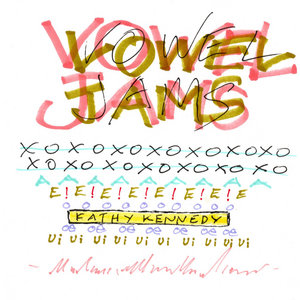 VOWEL
JAMS
XOXOXOXOXOXOXOXO
XOXOXOXOXOXOXOXO
A A A A A A A A A
E!E!E!E!E!E!E!E!E
o o o o o o o o o
KATHY KENNEDY
œ œ œ œ œ œ œ œ
Ui Ui Ui Ui Ui Ui Ui Ui Ui